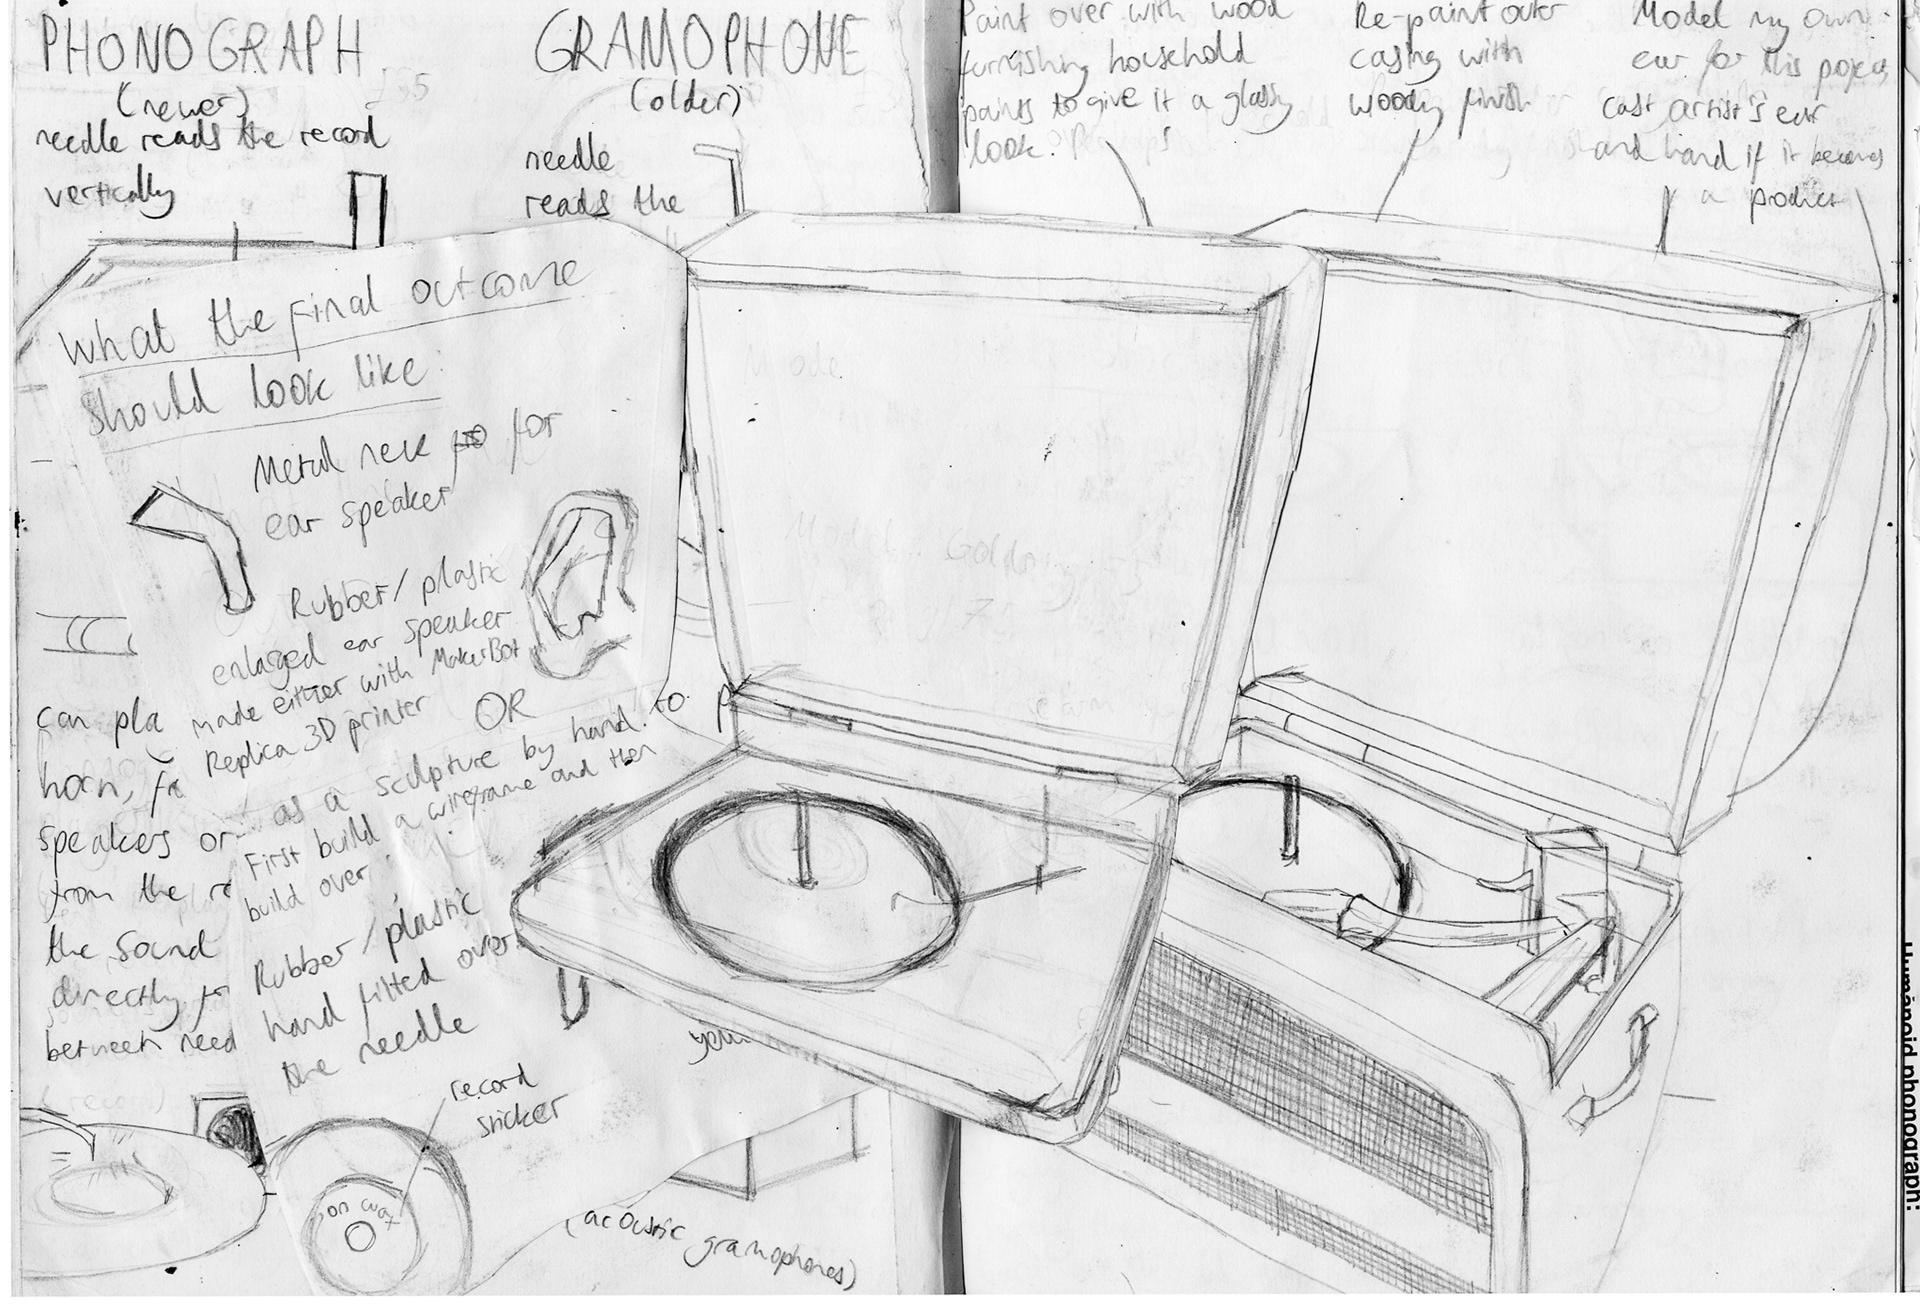 PHONOGRAPH
(newer)
needle reads the record
vertically
GRAMOPHONE
(older)
needle
reads the
Paint over with wood
furnishing household
paints to give it a glassy
look.
Re-paint outer
casing with
woody finish
Model my own
ear for this project
cast artist's ear
and hand if it becomes
a product
What the final outcome
should look like:
Metal neck for
ear speaker
Rubber/plastic
enlarged ear speaker
made either with MakerBot
Replica 3D printer
OR
as a sculpture by hand.
First build a wireframe and then
build over.
Rubber/plastic
hand fitted over
the needle
record
sticker
on wax
can pla
horn,
speakers or
from the re
the sound
directly
between need
to
(acoustic gramophones)
Humanoid phonograph: